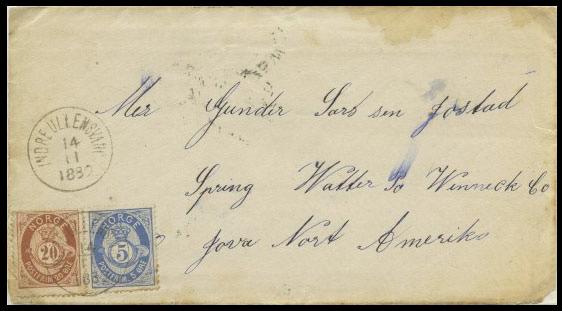 INDRE ULLENSVANG
14
11
1882
Mer Gunder Lars sen Jostad
Spring Watter Po Winneck Co
Jova Nort Ameriko
NORGE NORGE
20 5
POSTFRIM 20 ØRE POSTFRIM 5 ØRE